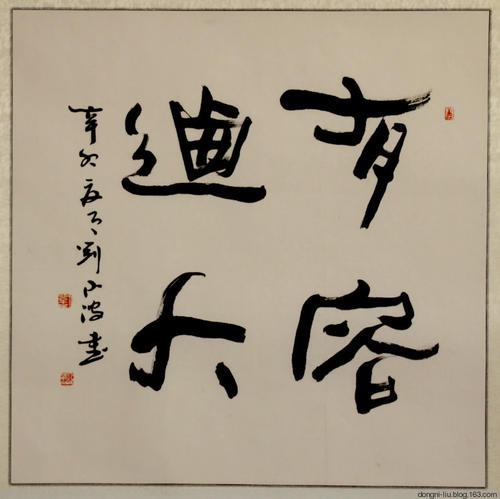 有容
迺大
辛卯夏月劉波書
dongni-liu.blog.163.com